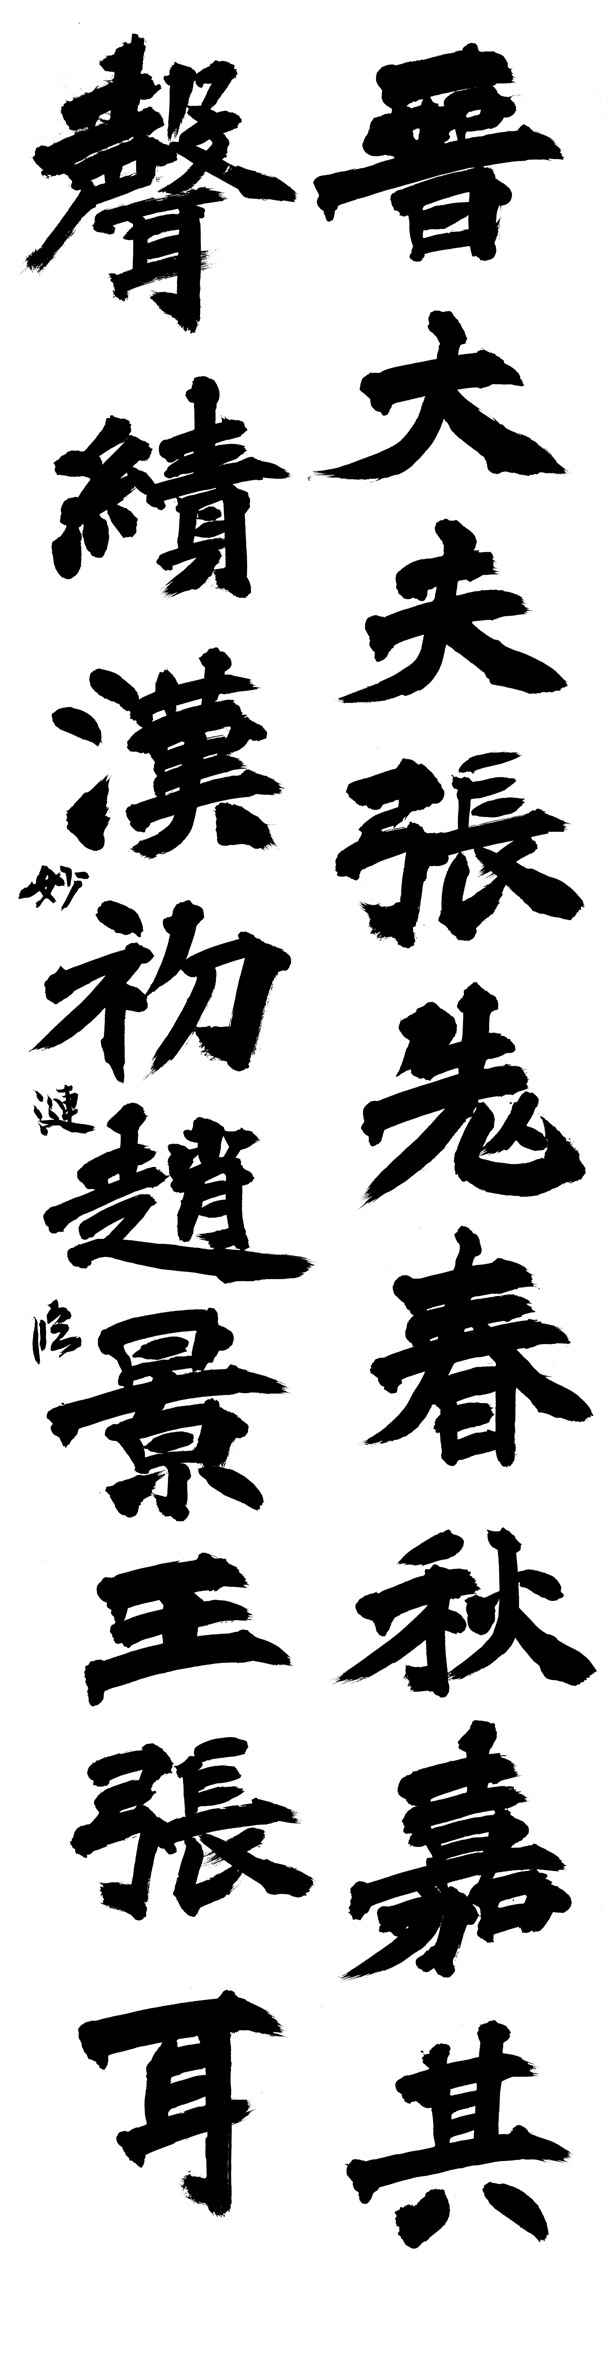 晉大夫張老春秋嘉其
聲績漢初趙景王張耳
妙漣臨